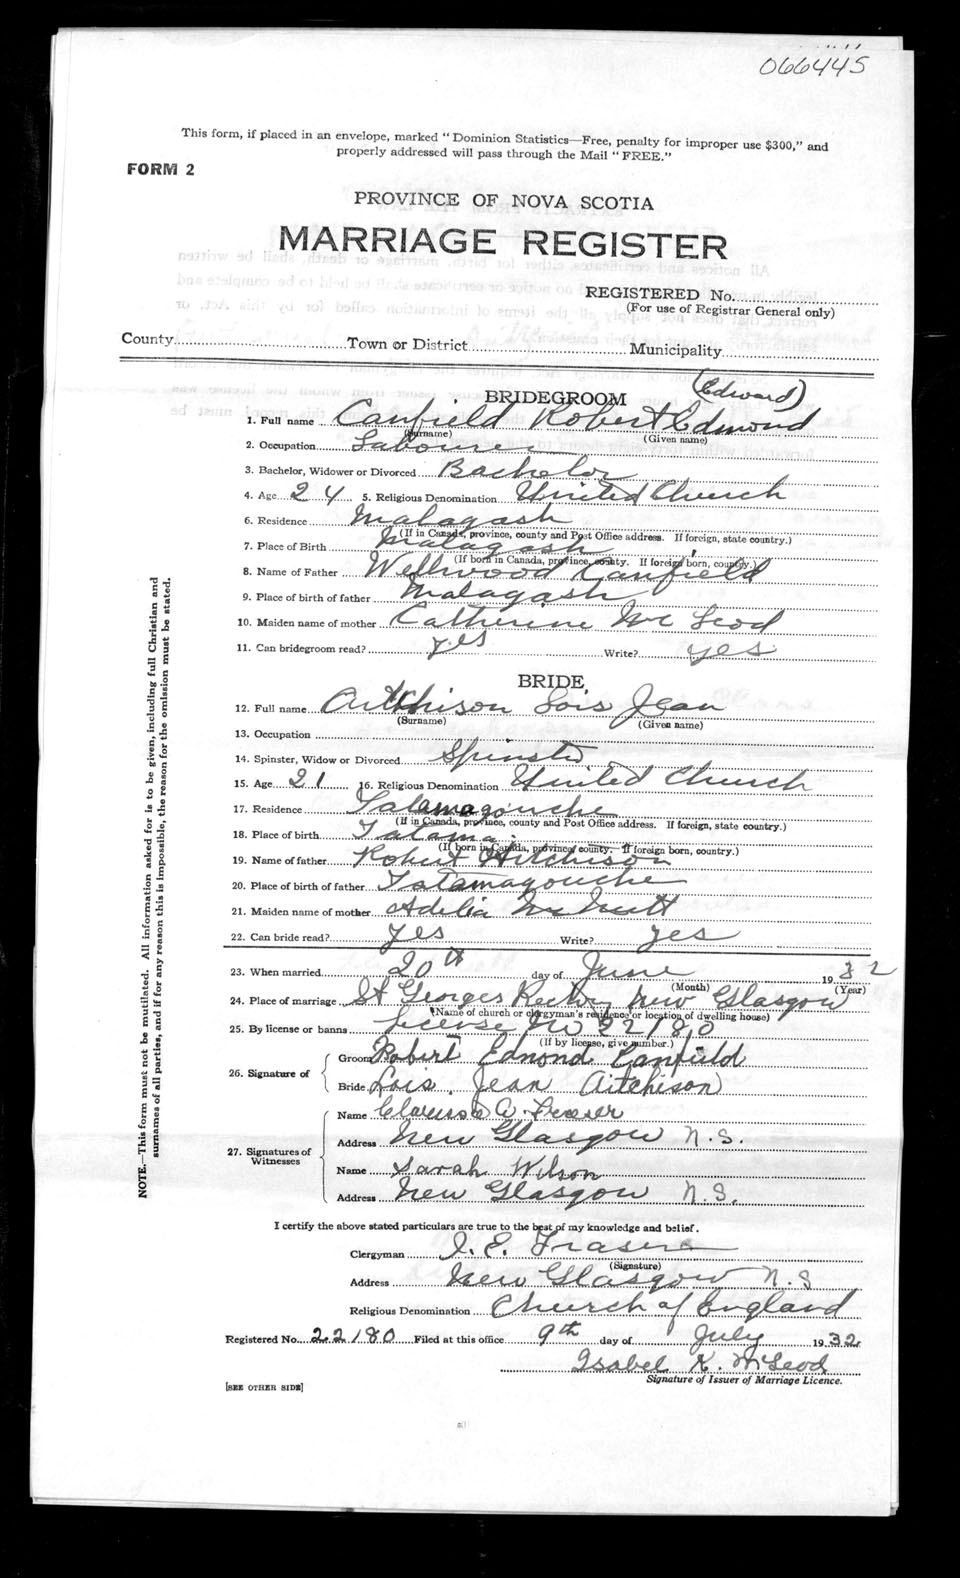 066445
This form, if placed in an envelope, marked "Dominion Statistics—Free, penalty for improper use $300," and
properly addressed will pass through the Mail "FREE."
FORM 2
PROVINCE OF NOVA SCOTIA
MARRIAGE REGISTER
REGISTERED No.
(For use of Registrar General only)
County Town or District Municipality
BRIDEGROOM (Edward)
1. Full name Canfield Robert Edmond
(Surname) (Given name)
2. Occupation Labourer
3. Bachelor, Widower or Divorced Bachelor
4. Age 24 5. Religious Denomination United Church
6. Residence Malagash
(If in Canada, province, county and Post Office address. If foreign, state country.)
7. Place of Birth Malagash
(If born in Canada, province, county. If foreign born, country.)
8. Name of Father Wellwood Canfield
9. Place of birth of father Malagash
10. Maiden name of mother Catherine Mc Leod
11. Can bridegroom read? yes Write? yes
BRIDE.
12. Full name Aitchison Lois Jean
(Surname) (Given name)
13. Occupation
14. Spinster, Widow or Divorced Spinster
15. Age 21 16. Religious Denomination United Church
17. Residence Tatamagouche
(If in Canada, province, county and Post Office address. If foreign, state country.)
18. Place of birth Tatama
(If born in Canada, province, county. If foreign born, country.)
19. Name of father Robert Aitchison
20. Place of birth of father Tatamagouche
21. Maiden name of mother Adelia McNutt
22. Can bride read? yes Write? yes
23. When married 20th day of June 1932
(Month) (Year)
24. Place of marriage St Georges Rectory New Glasgow
(Name of church or clergyman's residence or location of dwelling house)
25. By license or banns License No 22180
(If by license, give number.)
26. Signature of
Groom Robert Edmond Canfield
Bride Lois Jean Aitchison
27. Signatures of Witnesses
Name A. Fraser
Address New Glasgow N.S.
Name Sarah Wilson
Address New Glasgow N.S.
I certify the above stated particulars are true to the best of my knowledge and belief.
Clergyman J. E. Fraser
(Signature)
Address New Glasgow N.S
Religious Denomination Church of England
Registered No. 22180 Filed at this office 9th day of July 1932
Isabel K. McLeod
Signature of Issuer of Marriage Licence.
[SEE OTHER SIDE]
NOTE.—This form must not be mutilated. All information asked for is to be given, including full Christian and
surnames of all parties, and if for any reason this is impossible, the reason for the omission must be stated.